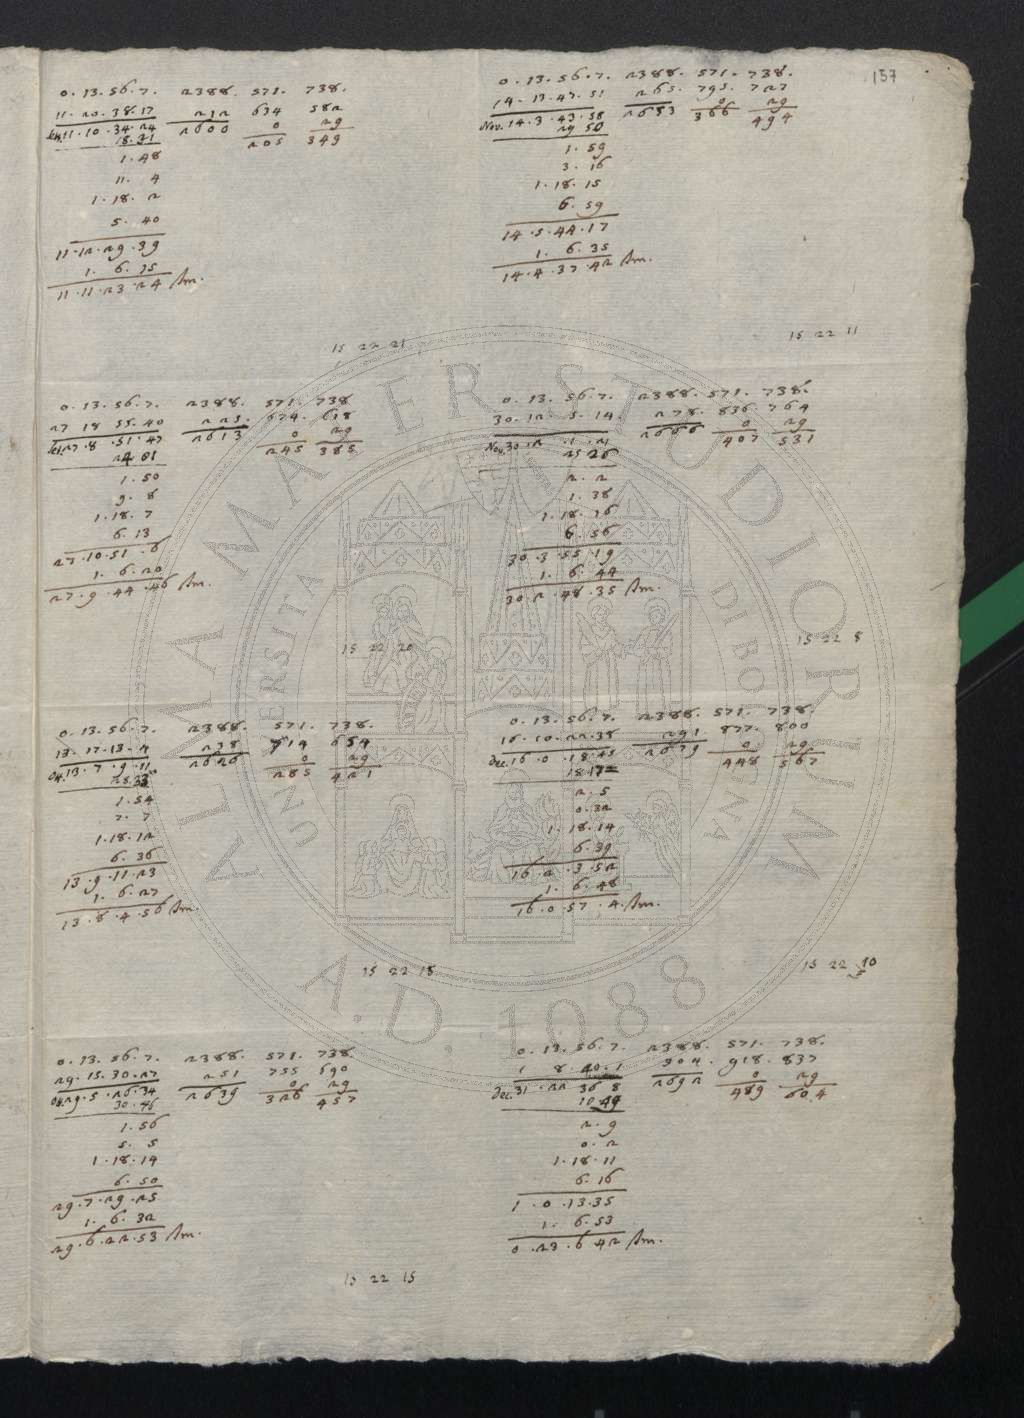 157
0. 13. 56. 7. 2388. 571. 738.
11. 20. 38. 17 212 634 582
11. 10. 34. 24 2600 0 29
18. 31 205 349
1. 48
11. 4
1. 18. 2
5. 40
11. 12. 29. 39
1. 6. 15
11. 11. 23. 24
15 22 21
0. 13. 56. 7. 2388. 571. 738
27 18 55. 40 225. 674. 618
27. 8. 51. 47 2613 0 29
24 01 245 385
1. 50
9. 8
1. 18. 7
6. 13
27. 10. 51. 6
1. 6. 20
27. 9. 44. 46
15 22 20
0. 13. 56. 7. 2388. 571. 738.
13. 17. 13. 4 238 714 654
Oct. 13. 7. 9. 11 2626 0 29
28. 33 285 421
1. 54
7. 7
1. 18. 12
6. 36
13. 9. 11. 23
1. 6. 27
13. 8. 4. 56
15 22 18
0. 13. 56. 7. 2388. 571. 738.
29. 15. 30. 27 251 755 690
Oct. 29. 5. 26. 34 2639 0 29
30. 46 326 457
1. 56
5. 5
1. 18. 14
6. 50
29. 7. 29. 25
1. 6. 32
29. 6. 22. 53
15 22 15
0. 13. 56. 7. 2388. 571. 738.
14. 13. 47. 51 265. 795. 727
Nov. 14. 3. 43. 58 2653 0 29
29 50 366 494
1. 59
3. 16
1. 18. 15
6. 59
14. 5. 44. 17
1. 6. 35
14. 4. 37. 42
15 22 11
0. 13. 56. 7. 2388. 571. 738.
30. 12. 5. 14. 278. 836. 764
Nov. 30. 2. 1. 21 2666 0 29
25 26 407 531
2. 2
1. 38
1. 18. 16
6. 56
30. 3. 55. 19
1. 6. 44
30. 2. 48. 35
15 22 8
0. 13. 56. 7. 2388. 571. 738.
16. 10. 22. 38 291 877. 800
Dec. 16. 0. 18. 45 2679 0 29
18 17 448 567
2. 5
0. 32
1. 18. 14
6. 39
16. 2. 3. 52
1. 6. 48
16. 0. 57. 4.
15 22 10
0. 13. 56. 7 2388. 571. 738.
1 8. 40. 1 304. 918. 837
Dec. 31. 22 36 8 2692 0 29
10 49 489 604
2. 9
0. 2
1. 18. 11
6. 16
1. 0. 13. 35
1. 6. 53
0. 23. 6 42
ALMA MATER STUDIORUM
UNIVERSITA DI BOLOGNA
A.D. 1088